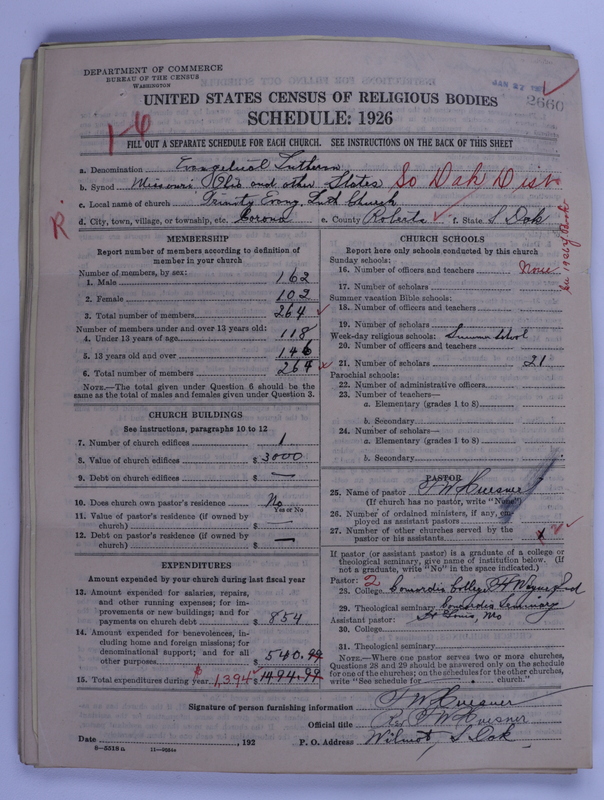 DEPARTMENT OF COMMERCE
BUREAU OF THE CENSUS
WASHINGTON
JAN 27
2660
UNITED STATES CENSUS OF RELIGIOUS BODIES
SCHEDULE: 1926
1-6
FILL OUT A SEPARATE SCHEDULE FOR EACH CHURCH. SEE INSTRUCTIONS ON THE BACK OF THIS SHEET
a. Denomination Evangelical Lutheran
b. Synod Missouri Ohio and other States So Dak Dist
c. Local name of church Trinity Evang. Luth Church
d. City, town, village, or township, etc. Corona e. County Roberts f. State S Dak
R.
MEMBERSHIP
Report number of members according to definition of
member in your church
Number of members, by sex:
1. Male 162
2. Female 102
3. Total number of members 264
Number of members under and over 13 years old:
4. Under 13 years of age 118
5. 13 years old and over 146
6. Total number of members 264
NOTE.—The total given under Question 6 should be the
same as the total of males and females given under Question 3.
CHURCH BUILDINGS
See instructions, paragraphs 10 to 12
7. Number of church edifices 1
8. Value of church edifices $ 3000
9. Debt on church edifices $ —
10. Does church own pastor's residence No
Yes or No
11. Value of pastor's residence (if owned by
church) $ —
12. Debt on pastor's residence (if owned by
church) $ —
EXPENDITURES
Amount expended by your church during last fiscal year
13. Amount expended for salaries, repairs,
and other running expenses; for im-
provements or new buildings; and for
payments on church debt $ 854
14. Amount expended for benevolences, in-
cluding home and foreign missions; for
denominational support; and for all
other purposes $ 540.99
15. Total expenditures during year $ 1,394 $ 1494.99
CHURCH SCHOOLS
Report here only schools conducted by this church
Sunday schools:
16. Number of officers and teachers None
17. Number of scholars
Summer vacation Bible schools:
18. Number of officers and teachers
19. Number of scholars
Week-day religious schools: Summer school
20. Number of officers and teachers
21. Number of scholars 21
Parochial schools:
22. Number of administrative officers
23. Number of teachers—
a. Elementary (grades 1 to 8)
b. Secondary
24. Number of scholars—
a. Elementary (grades 1 to 8)
b. Secondary
PASTOR
25. Name of pastor
(If church has no pastor, write "None")
26. Number of ordained ministers, if any, em-
ployed as assistant pastors
27. Number of other churches served by the
pastor or his assistants
If pastor (or assistant pastor) is a graduate of a college or
theological seminary, give name of institution below. (If
not a graduate, write "No" in the space indicated.)
Pastor: 2
28. College Concordia College Ft Wayne Ind
29. Theological seminary Concordia Seminary
Assistant pastor: St Louis, Mo
30. College
31. Theological seminary
NOTE.—Where one pastor serves two or more churches,
Questions 28 and 29 should be answered only on the schedule
for one of the churches; on the schedules for the other churches,
write "See schedule for church."
Signature of person furnishing information
Official title Rev
Date , 192 P. O. Address Wilmot S Dak
8-5518a 11-9034a